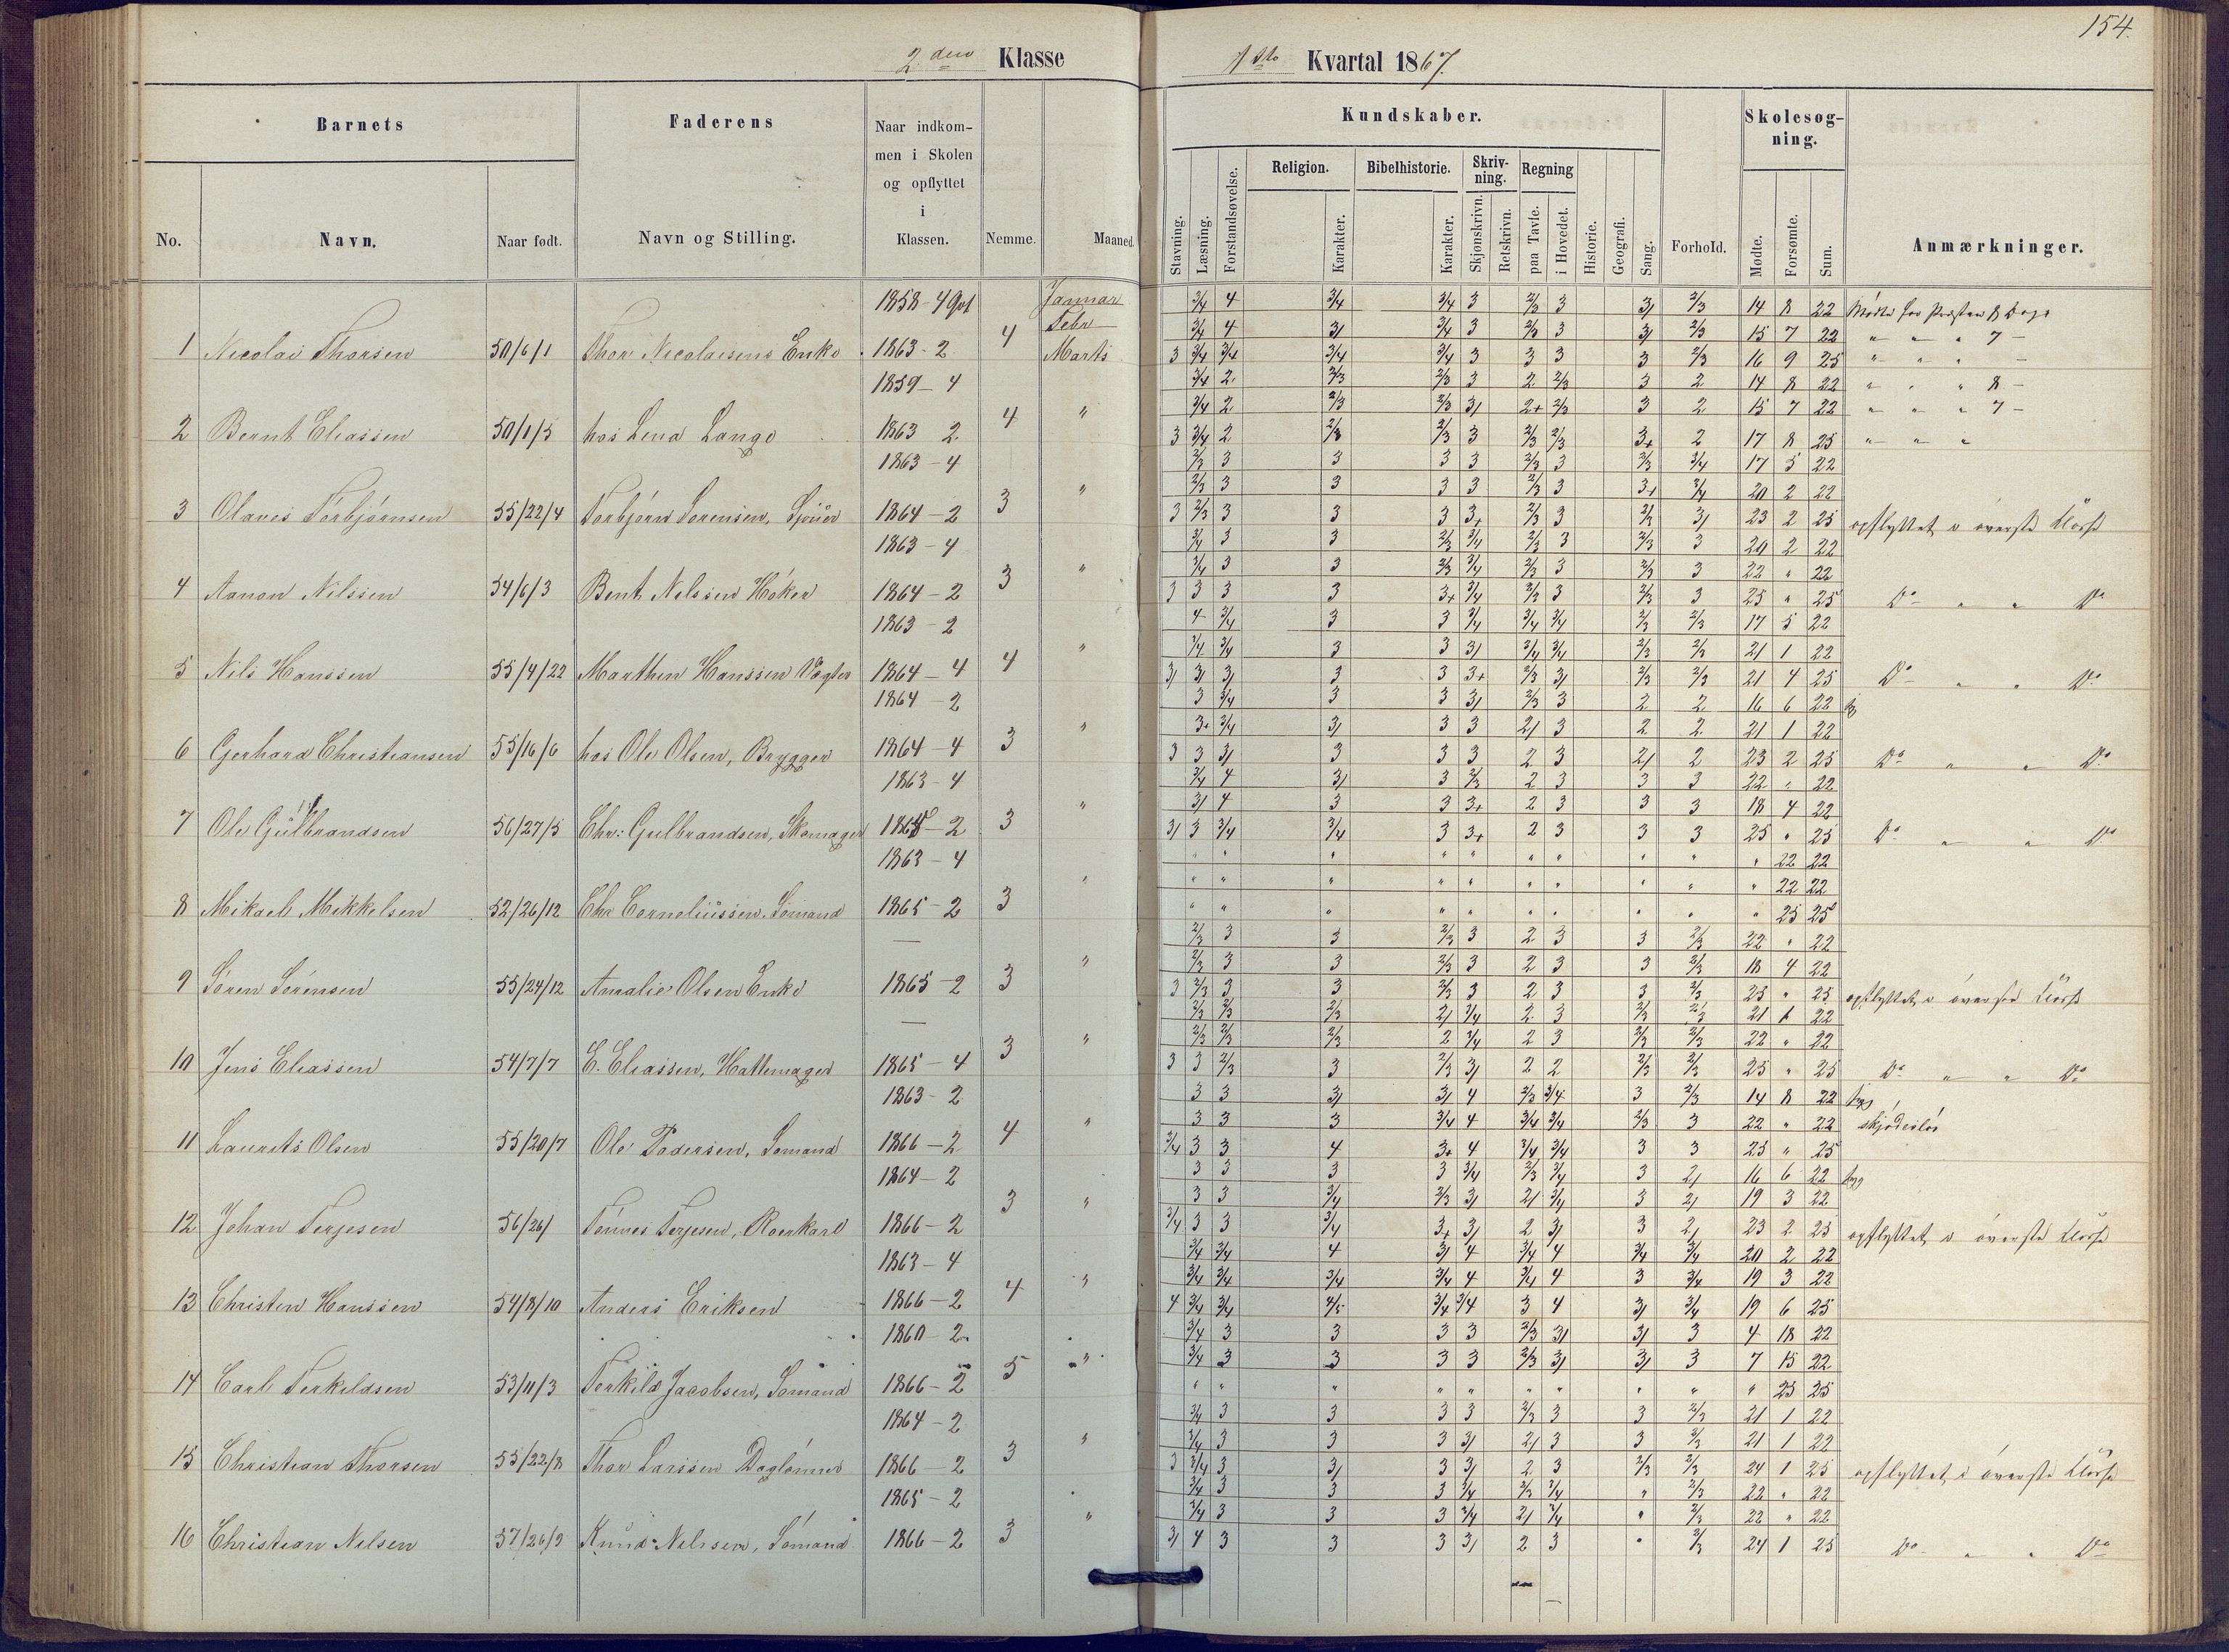 154.
2den Klasse
1ste Kvartal 1867.
Barnets
Faderens
Naar indkom-
men i Skolen
og opflyttet
i
Klassen.
No.
Navn.
Naar født.
Navn og Stilling.
Nemme.
Maaned.
Kundskaber.
Stavning.
Læsning.
Forstandsøvelse.
Religion.
Karakter.
Bibelhistorie.
Karakter.
Skriv-
ning.
Skjønskrivn.
Retskrivn.
Regning
paa Tavle.
i Hovedet.
Historie.
Geografi.
Sang.
Forhold.
Skolesøg-
ning.
Mødte.
Forsømte.
Sum.
Anmærkninger.
1858-4 Januar 3/4 4 3/4 3/4 3 2/3 3 3/ 2/3 14 8 22 Mødte for Præsten 8 Dage
Febr 3/4 4 3/ 3/4 3 2/3 3 3/ 2/3 15 7 22 " " " 7 -
1 Nicolai Thorsen 50/6/1 Thor Nicolaisens Enke 1863-2 4 Marts 3 3/4 3/4 3/4 3/4 3 3 3 3 2/3 16 9 25 " " " -
1859-4 3/4 2 2/3 2/3 3 2 2/3 3 2 14 8 22 " " " 8 -
3/4 2 2/3 2/3 3/ 2+ 2/3 3 2 15 7 22 " " " 7 -
2 Bernt Eliassen 50/1/5 hos Lena Lange 1863 2 4 " 3 3/4 2 2/3 2/3 3 2/3 2/3 3+ 2 17 8 25 " " "
1863-4 2/3 3 3 3 3 2/3 3 2/3 3/4 17 5 22
2/3 3 3 3 3 2/3 3 3+ 3/4 20 2 22
3 Olaves Torbjörnsen 55/22/4 Torbjörn Sorensen, 1864-2 3 " 3 2/3 3 3 3 3+ 2/3 3 2/3 3/ 23 2 25 opflyttet i øverste Klasse
1863-4 3/4 3 3 2/3 3/4 2/3 3 2/3 3 20 2 22
3/4 3 3 2/3 3/4 2/3 3 2/3 3 22 " 22
4 Aanon Nilsen 54/6/3 Bent Nilssen Höker 1864-2 3 " 3 3 3 3 3+ 3/4 2/3 3 2/3 3 25 " 25 Do " " Do
1863-2 4 3/4 3 3 3/4 3/4 3/4 2/3 2/3 17 5 22
3/4 3/4 3 3 3/ 3/4 3/4 2/3 2/3 21 1 22
5 Nils Hanssen 55/4/22 Marthen Hanssen Vægter 1864-4 4 " 3/ 3/ 3/ 3 3 3+ 2/3 3/ 2/3 2/3 21 4 25 Do " " Do
1864-2 3 3/4 3 3 3/ 2/3 3 2 2 16 6 22 syg
3+ 3/4 3/ 3 3 2/ 3 2 2 21 1 22
6 Gerhard Christiansen 55/16/6 hos Ole Olsen, Brygger 1864-4 3 " 3 3 3/ 3 3 3 2 3 2/ 2 23 2 25 Do " " Do
1863-4 3/4 4 3/ 3 2/3 2 3 3 3 22 " 22
3/ 4 3 3 3+ 2 3 3 3 18 4 22
7 Ole Gulbrandsen 56/27/5 Chr: Gulbrandsen, Skomager 1865-2 3 " 3/ 3 3/4 3/4 3 3+ 2 3 3 3 25 " 25 Do " " Do
1863-4 " " " " " " " " " " 22 22
" " " " " " " " " " 22 22
8 Mikael Mikkelsen 52/26/12 Chr Corneliussen, Sömand 1865-2 3 " " " " " " " " " " " 25 25
— 2/3 3 3 2/3 3 2 3 3 2/3 22 " 22
2/3 3 3 2/3 3 2 3 3 2/3 18 4 22
9 Sören Sörensen 55/24/12 Amalie Olsen Enke 1865-2 3 " 3 2/3 3 3 2/3 3 2 3 3 2/3 25 " 25 opflyttet i øverste Klasse
— 2/3 2/3 2/3 2/ 3/4 2 3 2/3 2/3 21 1 22
2/3 2/3 2/3 2 3/4 2 3 2/3 2/3 22 " 22
10 Jens Eliassen 54/7/7 E. Eliassen, Hattemager 1865-4 3 " 3 3 2/3 3 2/3 3/ 2 2 2/3 2/3 25 " 25 Do " " Do
1863-2 3 3 3/ 3/ 4 2/3 3/4 3 2/3 14 8 22 syg
3 3 3 3/4 4 3/4 3/4 2/3 3 22 " 22 skjödeslös
11 Laurits Olsen 55/20/7 Ole Pedersen, Sömand 1866-2 4 " 3/4 3 3 4 3+ 4 3/4 3/4 3 3 25 " 25
1864-2 3 3 3 3 3/4 2/3 3/4 3 2/ 16 6 22 syg
3 3 3/4 2/3 3/ 2/ 3/4 3 2/ 19 3 22
12 Johan Terjesen 56/26/ Tönnes Terjesen, Roerkarl 1866-2 3 " 3/4 3 3 3/4 3+ 3/ 2 3/ 3 2/ 23 2 25 opflyttet i øverste Klasse
1863-4 3/4 3/4 4 3/ 4 3/4 4 3/4 3/4 20 2 22
3/4 3/4 3/4 3/4 4 3/4 4 3 3/4 19 3 22
13 Christen Hanssen 54/8/10 Anders Eriksen 1866-2 4 " 4 3/4 3/4 4/5 3/4 3/4 3 4 3/ 3/4 19 6 25
1860-2 3/4 3 3 3 3 2/3 3/ 3/ 3 4 18 22
3/4 3 3 3 3 2/3 3/ 3/ 3 7 15 22
14 Carl Terkildsen 53/11/3 Terkild Jacobsen, Sömand 1866-2 5 " " " " " " " " " " " 25 25
1864-2 3/4 3 3 3 3 2/3 3 3 2/3 21 1 22
3/4 3 3 3 3/ 2/ 3 3 2/3 21 1 22
15 Christian Thorsen 55/22/8 Thor Larssen Daglönner 1866-2 3 " 3 3/4 3 3/ 3 3/ 2 3 2/3 2/3 24 1 25 opflyttet i øverste Klasse
1865-2 3/4 3 3 3 3/4 2/3 3/4 " 2/3 22 " 22
3/4 3 3 3 3/4 2/ 3/4 " 2/3 22 " 22
16 Christian Nilsen 57/26/9 Knud Nilssen, Sömand 1866-2 3 " 3/ 4 3 3 3 3/ 2 3 " 2/3 24 1 25 Do " " Do